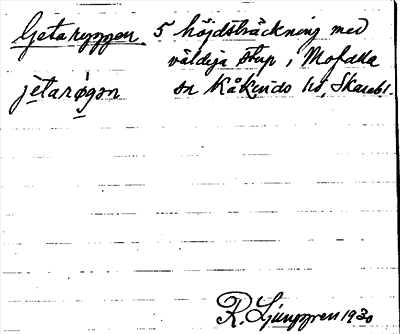 Getaryggen. 5 höjdsträckning med
väldiga stup i Mofalla
jetarøgən sn Kåkinds hd, Skarabl.
R. Ljunggren 1930